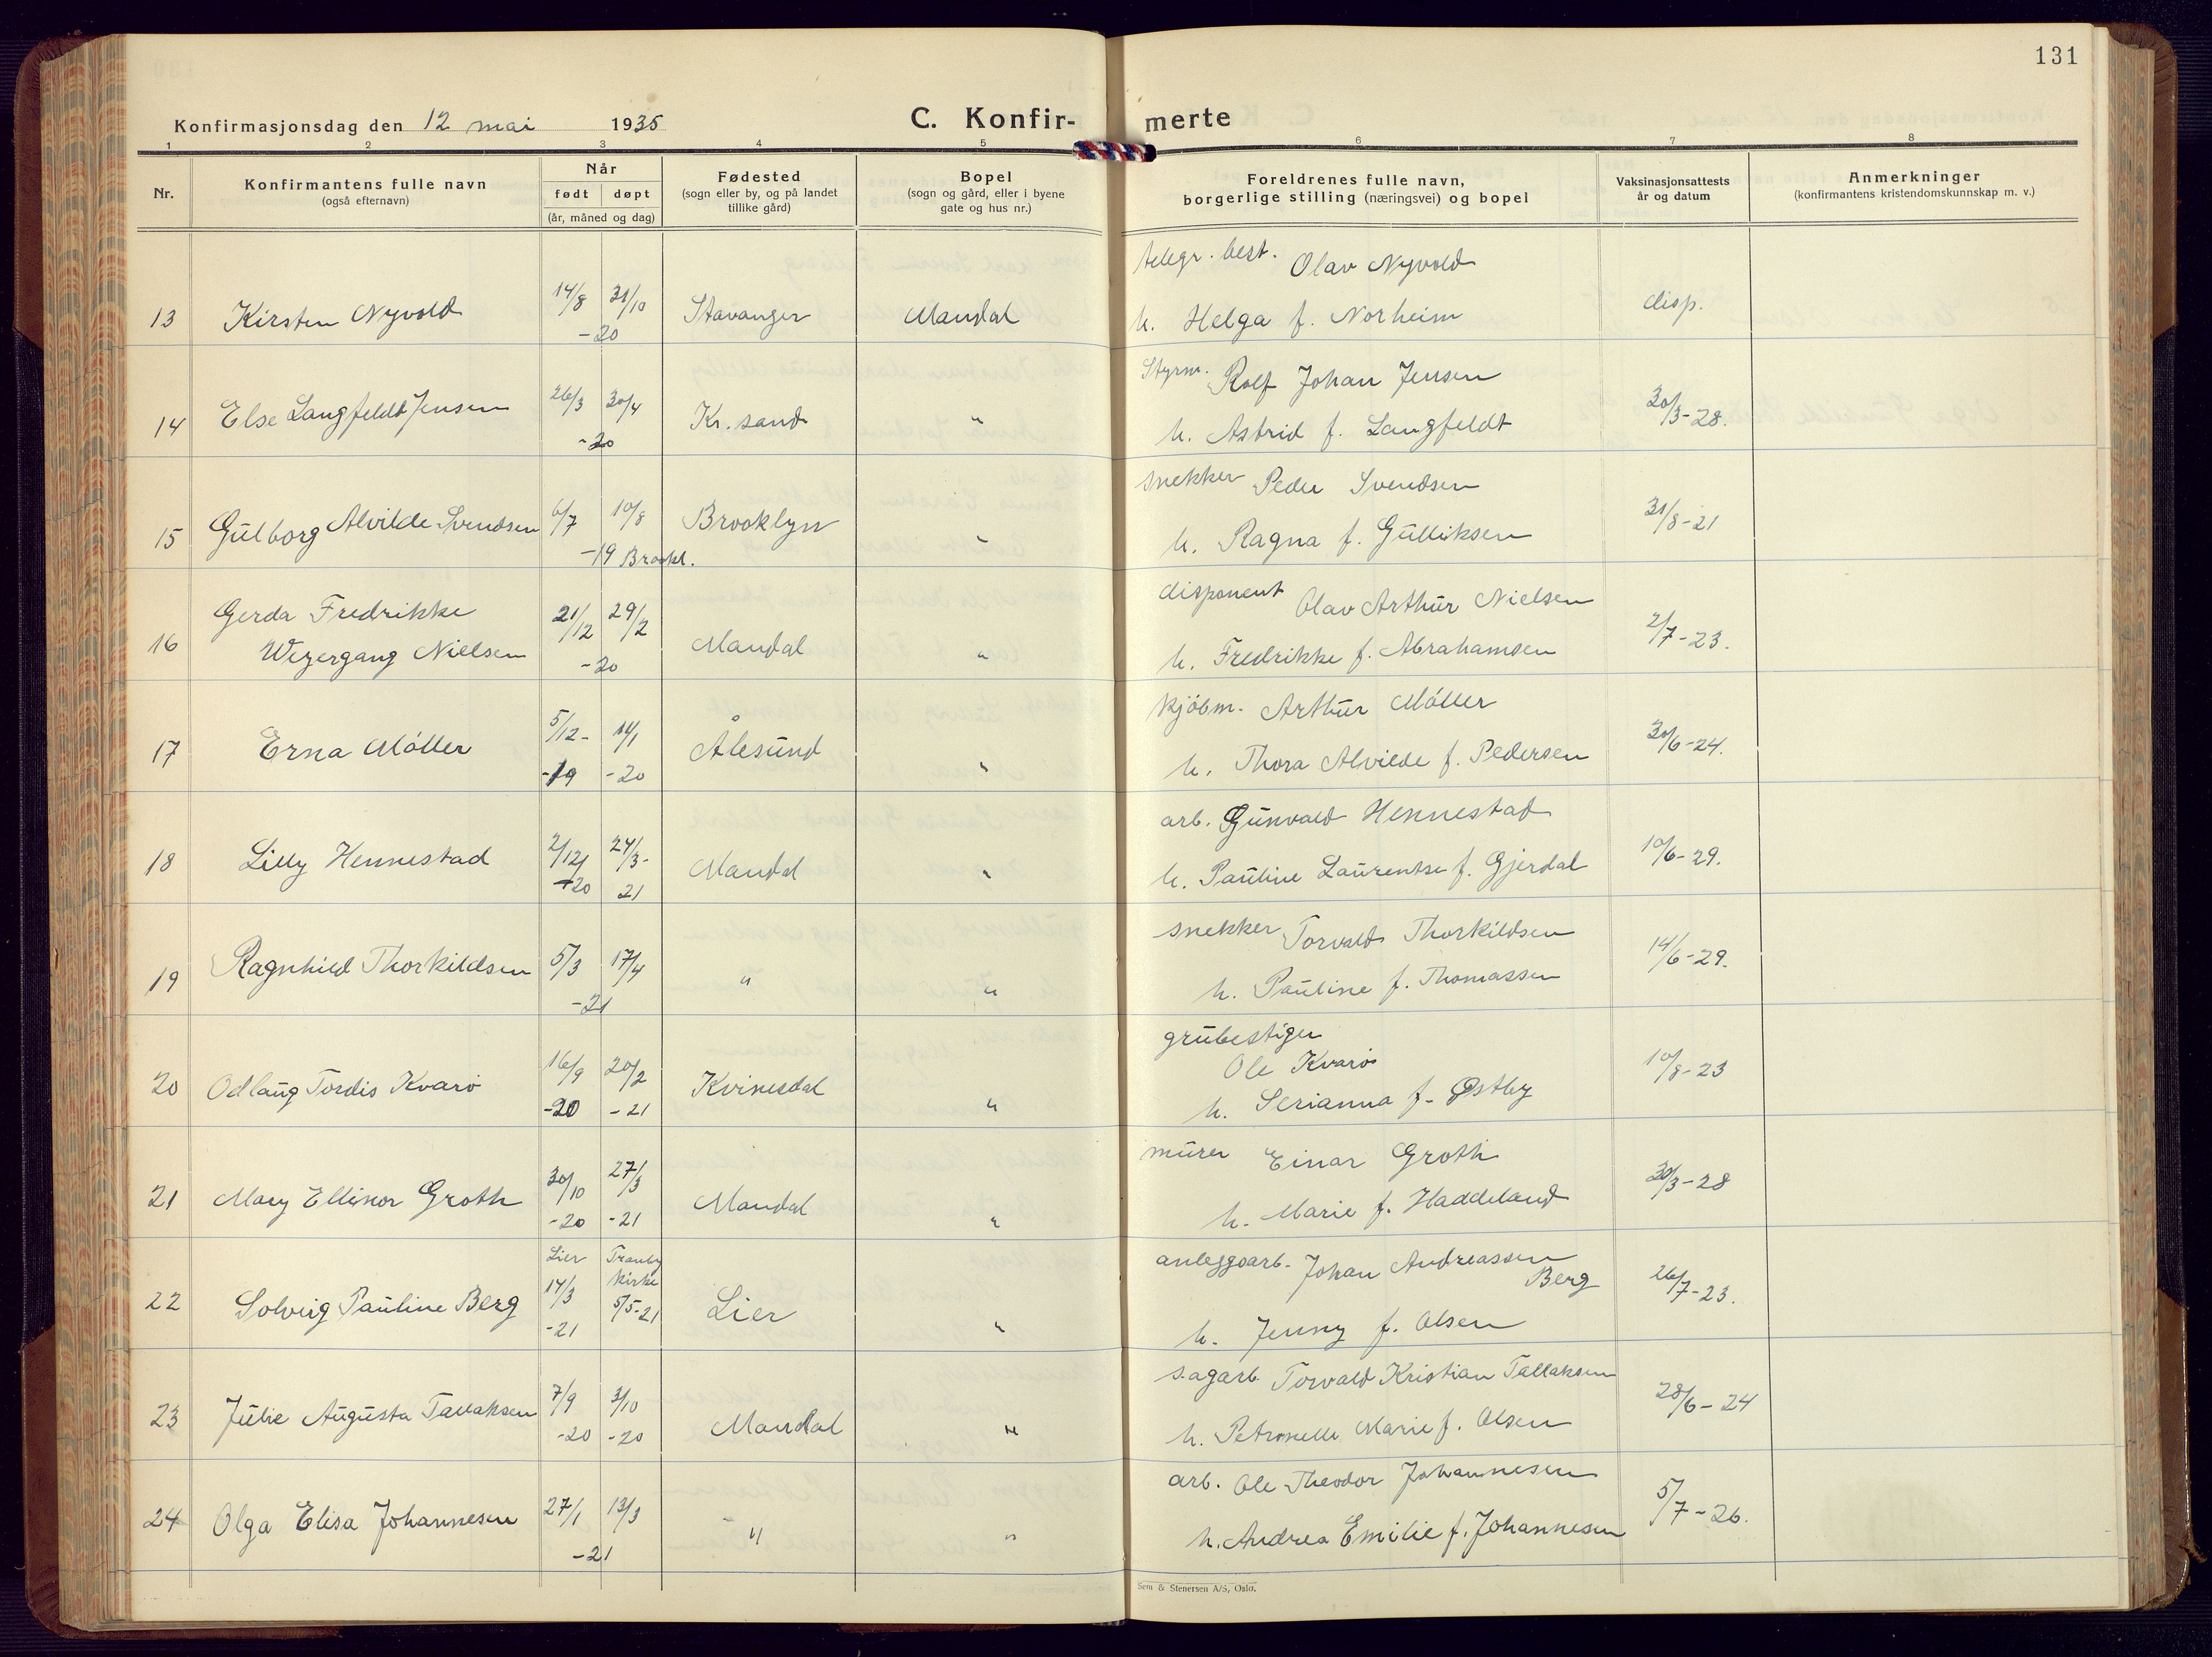 131
Konfirmasjonsdag den 12 mai 1935
C. Konfir-merte
1 2 3 4 5 6 7 8
Nr.
Konfirmantens fulle navn
(også efternavn)
Når
født døpt
(år, måned og dag)
Fødested
(sogn eller by, og på landet
tillike gård)
Bopel
(sogn og gård, eller i byene
gate og hus nr.)
Foreldrenes fulle navn,
borgerlige stilling (næringsvei) og bopel
Vaksinasjonsattests
år og datum
Anmerkninger
(konfirmantens kristendomskunnskap m. v.)
telegr. best. Olav Nyvold
13 Kirsten Nyvold 14/8 31/10 -20 Stavanger Mandal h. Helga f. Norheim disp.
Styrm. Rolf Johan Jensen
14 Else Langfeldt Jensen 26/3 30/4 -20 Kr.sand " h. Astrid f. Langfeldt 30/3-28.
snekker Peder Svendsen
15 Gulborg Alvilde Svendsen 6/7 10/8 -19 Brookl. Brooklyn " h. Ragna f. Gulliksen 31/8-21
disponent Olav Arthur Nielsen
16 Gerda Fredrikke
Weyergang Nielsen 21/12 29/2 -20 Mandal " h. Fredrikke f. Abrahamsen 2/7-23.
kjöbm. Arthur Möller
17 Erna Möller 5/12- 11/1 -19 -20 Ålesund " h. Thora Alvilde f. Pedersen 30/6-24.
arb. Gunvald Hennestad
18 Lilly Hennestad 2/12 24/3- -20 21 Mandal " h. Pauline Laurentse f. Gjerdal 10/6-29.
snekker Torvald Thorkildsen
19 Ragnhild Thorkildsen 5/3 17/4 -21 " " h. Pauline f. Thomassen 14/6-29.
grubestiger
Ole Kvarö
20 Odlaug Tordis Kvarö 16/9 20/2 -20 -21 Kvinesdal " h. Serianna f. Østby 10/8-23
murer Einar Groth
21 Mary Ellinor Groth 30/10 27/3 -20 -21 Mandal " h. Marie f. Haddeland 30/3-28
anleggsarb. Johan Andreassen
Berg
22 Solveig Pauline Berg Lier 14/3 -21 Tranby kirke 5/5-21 Lier " h. Jenny f. Olsen 26/7-23.
sagarb. Torvald Kristian Tallaksen
23 Julie Augusta Tallaksen 7/9 3/10 -20 -20 Mandal " h. Petronelle Marie f. Olsen 28/6-24
arb. Ole Theodor Johannesen
24 Olga Elisa Johannesen 27/1 13/3 -21 " " h. Andrea Emilie f. Johannesen 5/7-26.
Sem & Stenersen A/S, Oslo.